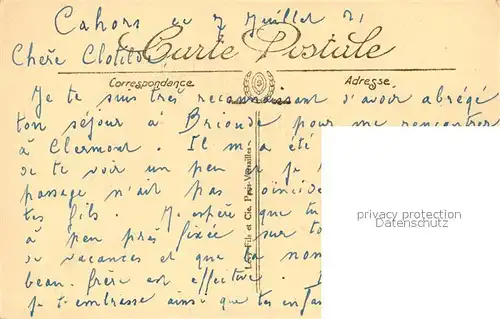 Cahors ce 7 Juillet 21
Chère Clotilde
Carte Postale
Correspondance
Adresse
Je te suis très reconnaissant d'avoir abrégé
ton séjour à Brioude pour me rencontrer
à Clermont. Il m'a été
de te voir un peu et je
passage n'ait pas coïncidé
tes fils. J'espère que tu
à peu près fixée sur to
de vacances et que la nom
beau-frère est effective.
Je t'embrasse ainsi que tes enfan
Lévy Fils et Cie, Paris-Versailles
privacy protection
Datenschutz